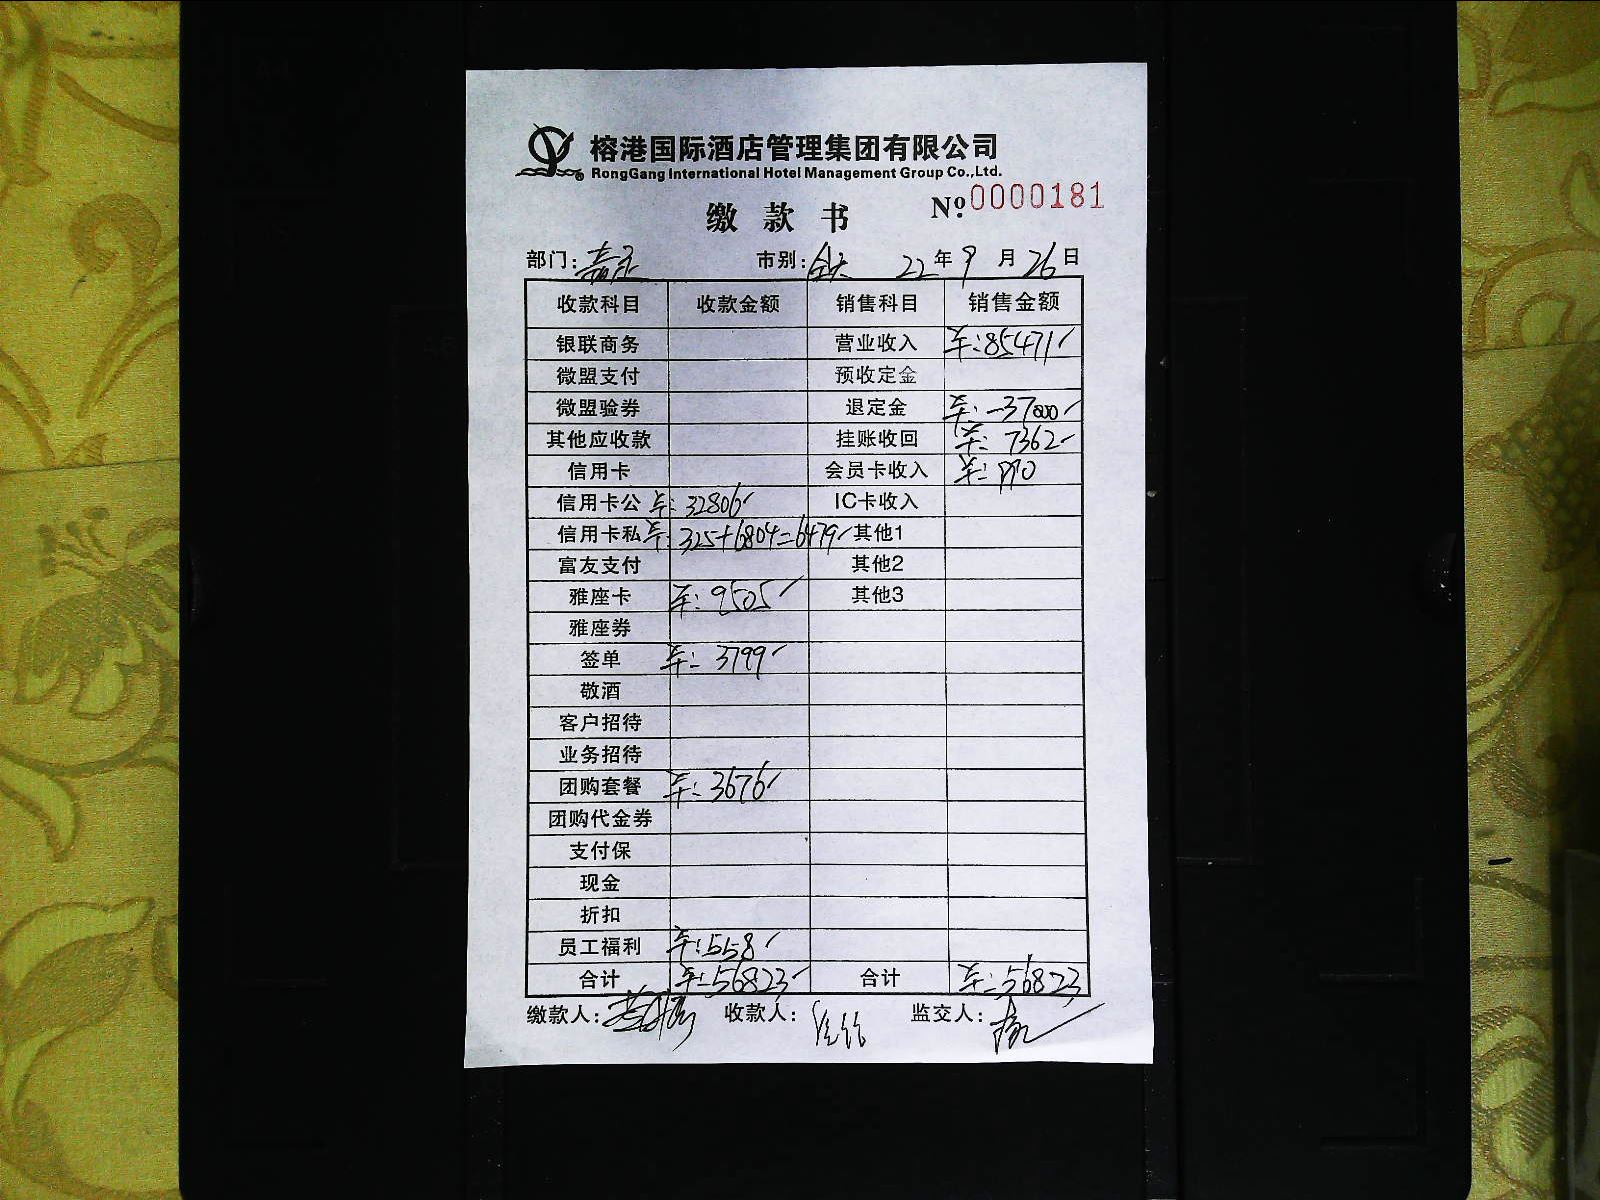 榕港国际酒店管理集团有限公司
RongGang International Hotel Management Group Co.,Ltd.
缴 款 书 Nº 0000181
部门: 嘉定 市别: 全天 22 年 9 月 26 日
收款科目 收款金额 销售科目 销售金额
银联商务 营业收入 ¥:85471
微盟支付 预收定金
微盟验券 退定金 ¥:-37000
其他应收款 挂账收回 ¥: 7362
信用卡 会员卡收入 ¥: 990
信用卡公 ¥: 32806 IC卡收入
信用卡私 ¥: 325+6804=6479 其他1
富友支付 其他2
雅座卡 ¥: 9505 其他3
雅座券
签单 ¥: 3799
敬酒
客户招待
业务招待
团购套餐 ¥: 3676
团购代金券
支付保
现金
折扣
员工福利 ¥:558
合计 ¥:56823 合计 ¥:56823
缴款人: 收款人: 监交人: